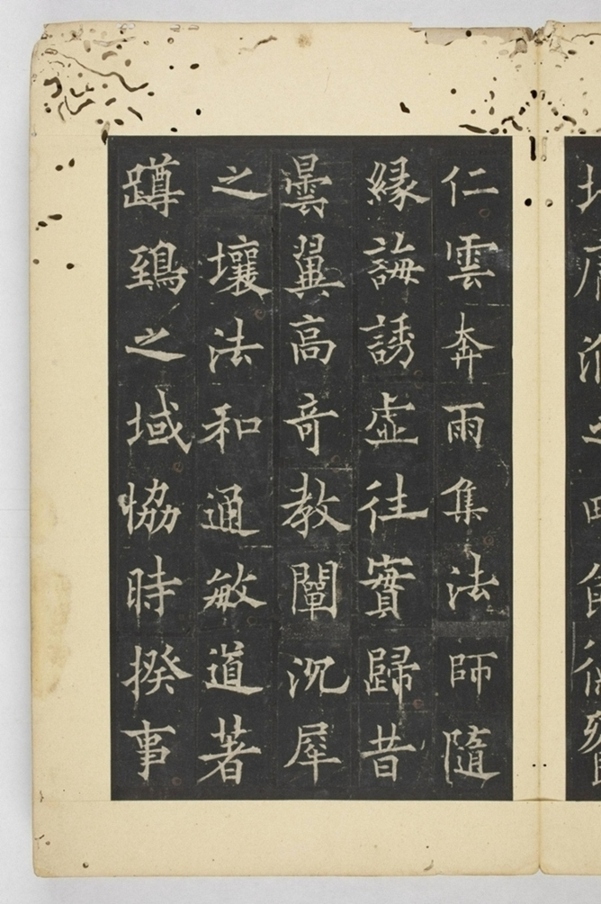 仁雲奔雨集法師隨
緣誨誘虛往實歸昔
曇翼高竒教闡沉犀
之壤法和通敏道著
蹲鵄之域恊時揆事